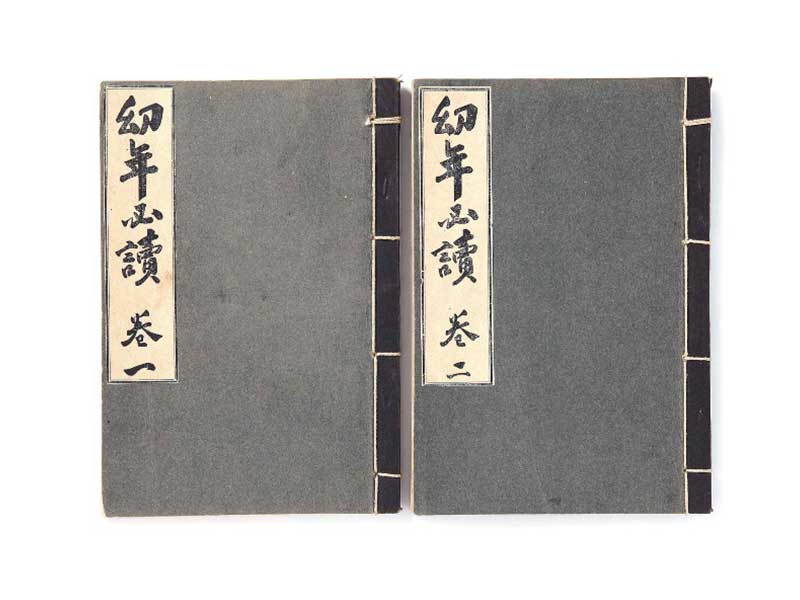 幼年必讀 卷一
幼年必讀 卷二